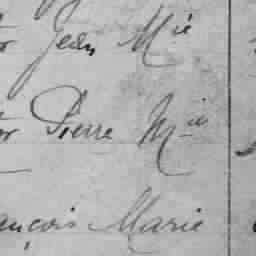 Jean M.ie
Pierre M.ie
ançois Marie